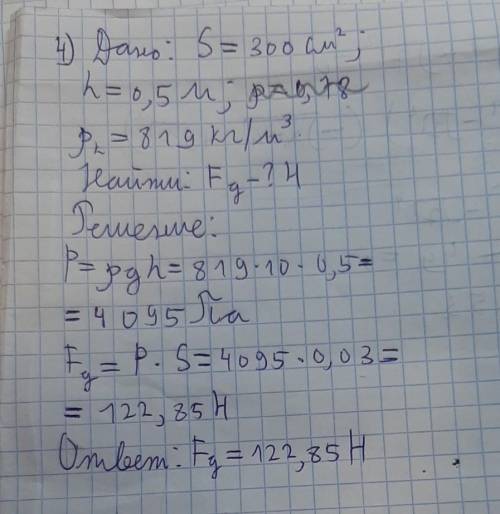 4) Дано: S = 300 см²;
h = 0,5 м;
ρₖ = 819 кг/м³.
Найти: F_g - ? Н
Решение:
P = ρgh = 819 · 10 · 0,5 =
= 4 095 Па
F_g = P · S = 4095 · 0,03 =
= 122,85 Н
Ответ: F_g = 122,85 Н